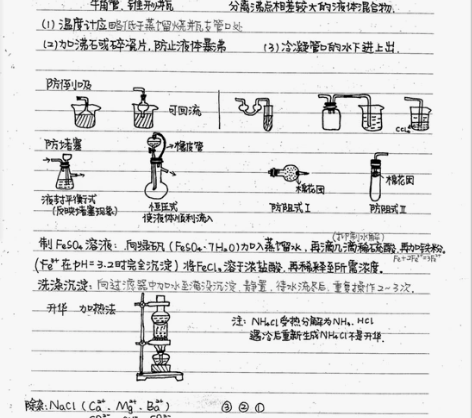 牛角管、锥形瓶 分离沸点相差较大的液体混合物.
(1) 温度计应略低于蒸馏烧瓶支管口处
(2) 加沸石或碎瓷片, 防止液体暴沸 (3) 冷凝管口的水下进上出.
防倒吸
可回流
CCl₄
防堵塞
橡皮管
棉花团
棉花团
液封平衡式
(反映堵塞现象)
恒压式
使液体顺利流入
防阻式Ⅰ
防阻式Ⅱ
(抑制水解)
制FeSO₄溶液: 向绿矾 (FeSO₄·7H₂O) 加入蒸馏水, 再滴几滴稀硫酸, 再加铁粉.
Fe+2Fe³⁺=3Fe²⁺
(Fe³⁺在pH=3.2时完全沉淀) 将FeCl₃溶于浓盐酸, 再稀释至所需浓度.
洗涤沉淀: 向过滤器中加水至淹没沉淀, 静置, 待水流尽后, 重复操作2~3次.
升华 加热法
注: NH₄Cl受热分解为NH₃、HCl
遇冷后重新生成NH₄Cl不是升华.
除杂: NaCl (Ca²⁺、Mg²⁺、Ba²⁺) ③ ② ①